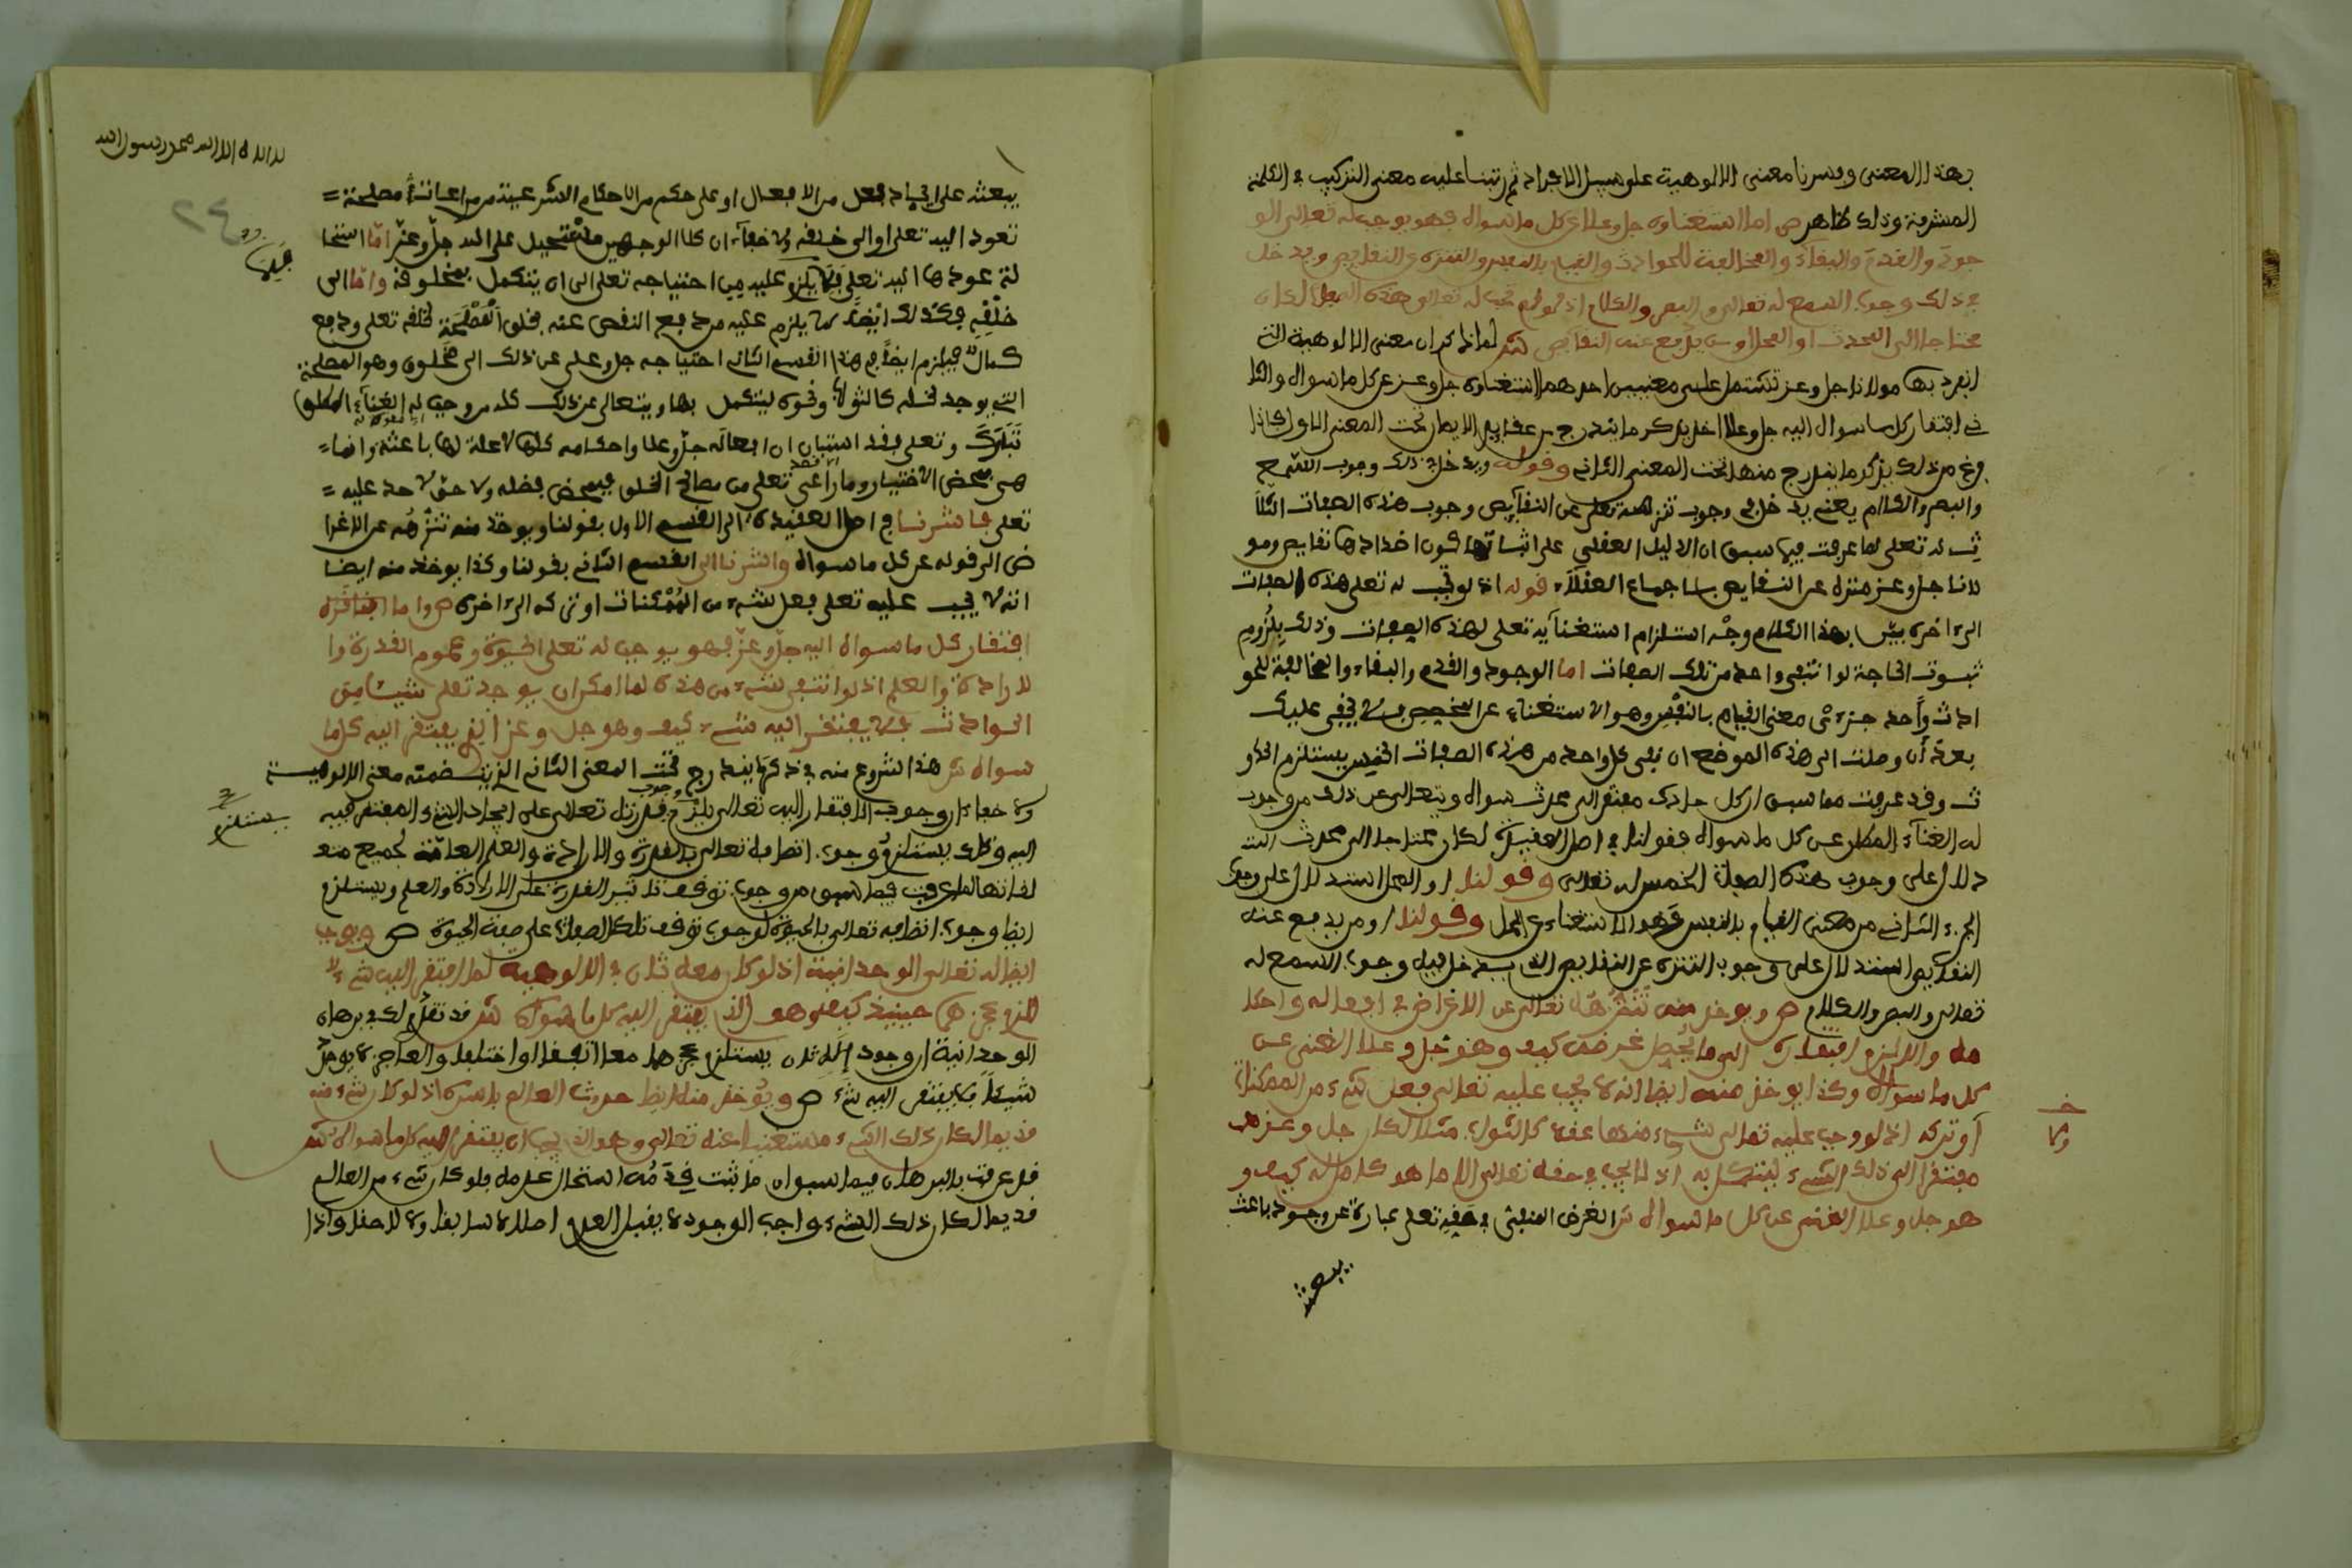 بهذا المعنى وفسرنا معنى الالوهية على سبيل الافراد ثم رتبنا عليه معنى التركيب في الكلمة
المشرفة وذلك ظاهر ص اما استغناوه جل وعلا عن كل ما سواه فهو يوجب له تعالى الو
جود والقدم والبقاء والمخالفة للحوادث والقيام بالنفس والتنزه عن النقايص ويدخل
في ذلك وجوب السمع له تعالى والبصر والكلام اذ لو لم تجب له تعالى هذه الصفات لكان
محتاجا الى المحدث او المحل او من يدفع عنه النقايص ش لما ذكر ان معنى الالوهية التي
انفرد بها مولانا جل وعز تشتمل على معنيين احدهما استغناوه جل وعز عن كل ما سواه والثا
ني افتقار كل ما سواه اليه جل وعلا اخذ يذكر ما يندرج من عقايد الايمان تحت المعنى الاول فاذا
فرغ من ذلك يذكر ما يندرج منها تحت المعنى الثاني وقوله ويدخل في ذلك وجوب السمع
والبصر والكلام يعني يدخل في وجوب تنزهه تعلى عن النقايص وجوب هذه الصفات الثلا
ث له تعلى لما عرفت فيما سبق ان الدليل العقلي على اثباتها كون اضدادها نقايص وهو
لانا جل وعز منزه عن النقايص باجماع العقلاء قوله اذ لو لم تجب له تعلى هذه الصفات
الى اخره بين بهذا الكلام وجه استلزام استغنايه تعلى لهذه الصفات وذلك بلزوم
ثبوت الحاجة لو انتفى واحد من تلك الصفات اما الوجود والقدم والبقاء والمخالفة للحو
ادث واحد جزءى معنى القيام بالنفس وهو الاستغناء عن المخصص فلا يخفى عليك
بعد أن وصلت الى هذه الموضع ان نفى كل واحد من هذه الصفات الخمس يستلزم الحدو
ث وقد عرفت مما سبق ان كل حادث مفتقر الى محدث سواه ويتعالى عن ذلك من وجب
له الغناء المطلق عن كل ما سواه فقولنا في اصل العقيدة لكان محتاجا الى محدث است
دلال على وجوب هذه الصفات الخمس له تعالى وقولنا او المحل استدلال على وجوب
الجزء الثاني من معنى القيام بالنفس وهو الاستغناء عن المحل وقولنا او من يدفع عنه
النقايص استدلال على وجوب التنزه عن النقايص الذي يدخل فيه وجوب السمع له
تعالى والبصر والكلام ص ويوخذ منه تنزهه تعالى عن الاغراض في افعاله واحكا
مه والا لزم افتقاره الى ما يحصل غرضه كيف وهو جل وعلا الغنى عن
كل ما سواه وكذا يوخذ منه ايضا انه لا يجب عليه تعالى فعل شيء من الممكنات
أو تركه اذ لو وجب عليه تعالى شيء منها عقلا كالثواب مثلا لكان جل وعز
مفتقرا الى ذلك الشيء ليتكمل به اذ لا يجب في حقه تعالى الا ما هو كمال له كيف و
هو جل وعلا الغنى عن كل ما سواه ش الغرض المنفى في حقه تعلى عبارة عن وجود باعث
يبعثه
لا اله الا الله محمد رسول الله
يبعثه على ايجاد فعل من الافعال او على حكم من الاحكام الشرعية من مراعات مصلحة
تعود اليه تعلى او الى خلقه ولا خفاء ان كلا الوجهين مستحيل على الله جل وعز اما استحا
لة عودها اليه تعلى فلما يلزم عليه من احتياجه تعلى الى ان يتكمل بمخلوقه واما الى
خلقه فكذلك ايضا لما يلزم عليه من دفع النقص عنه بخلق المصلحة لخلقه تعلى ودفع
كمال فيلزم ايضا في هذا القسم الثاني احتياجه جل وعلى عن ذلك الى مخلوق وهو المصلحة
التي يوجد لخلقه كالثواب ونحوه ليتكمل بها ويتعالى عن ذلك كله من وجب له الغناء المطلق
تبارك وتعلى فقد استبان ان افعاله جل وعلا واحكامه كلها لا علة لها باعثة وانما
هي بمحض الاختيار وما راعى تعلى من مصالح الخلق فبمحض فضله ولا حق لاحد عليه
تعلى فاشرنا في اصل العقيدة الى القسم الاول بقولنا ويوخذ منه تنزهه عن الاغرا
ض الى قوله عن كل ما سواه واشرنا الى القسم الثاني بقولنا وكذا يوخذ منه ايضا
انه لا يجب عليه تعلى فعل شيء من الممكنات او تركه الى اخره ص واما
افتقار كل ما سواه اليه جل وعز فهو يوجب له تعلى الحيوة وعموم القدرة وا
لارادة والعلم اذ لو انتفى شيء من هذه لما امكن ان يوجد تعلى شيئا من
الحوادث فلا يفتقر اليه شيء كيف وهو جل وعز الذي يفتقر اليه كل ما
سواه ش هذا شروع منه في ذكر ما يندرج تحت المعنى الثاني الذي تضمنه معنى الالوهية
ولا خفاء ان وجوب الافتقار اليه تعالى يلزم وجوب قدرته تعالى على ايجاد الشيء المفتقر فيه
اليه وذلك يستلزم وجوب اتصافه تعالى بالقدرة والارادة والعلم العامة لجميع متع
لقاتها لما عرفت فيما سبق من وجوب توقف تاثير القدرة على الارادة والعلم ويستلزم
ايضا وجوب اتصافه تعالى بالحيوة لوجوب توقف تلك الصفات على صفة الحيوة ص ويوجب
ايضا له تعالى الوحدانية اذ لو كان معه ثان في الالوهية لما افتقر اليه شيء
للزوم عجزهما حينيذ كيف وهو الذي يفتقر اليه كل ما سواه ش قد تقدم لك في برهان
الوحدانية ان وجود اله ثان يستلزم عجزهما معا اتفقا او اختلفا والعاجز لا يوجد
شيئا فلا يفتقر اليه شيء ص ويوخذ منه ايضا حدوث العالم باسره اذ لو كان شيء منه
قديما لكان ذلك الشيء مستغنيا عنه تعالى وهو الذي يجب ان يفتقر اليه كل ما سواه ش
قد عرفت بالبرهان فيما سبق ان ما ثبت قدمه استحال عدمه فلو كان شيء من العالم
قديما لكان ذلك الشيء واجب الوجود لا يقبل العدم اصلا لا سابقا ولا لاحقا واذا
يستلزم